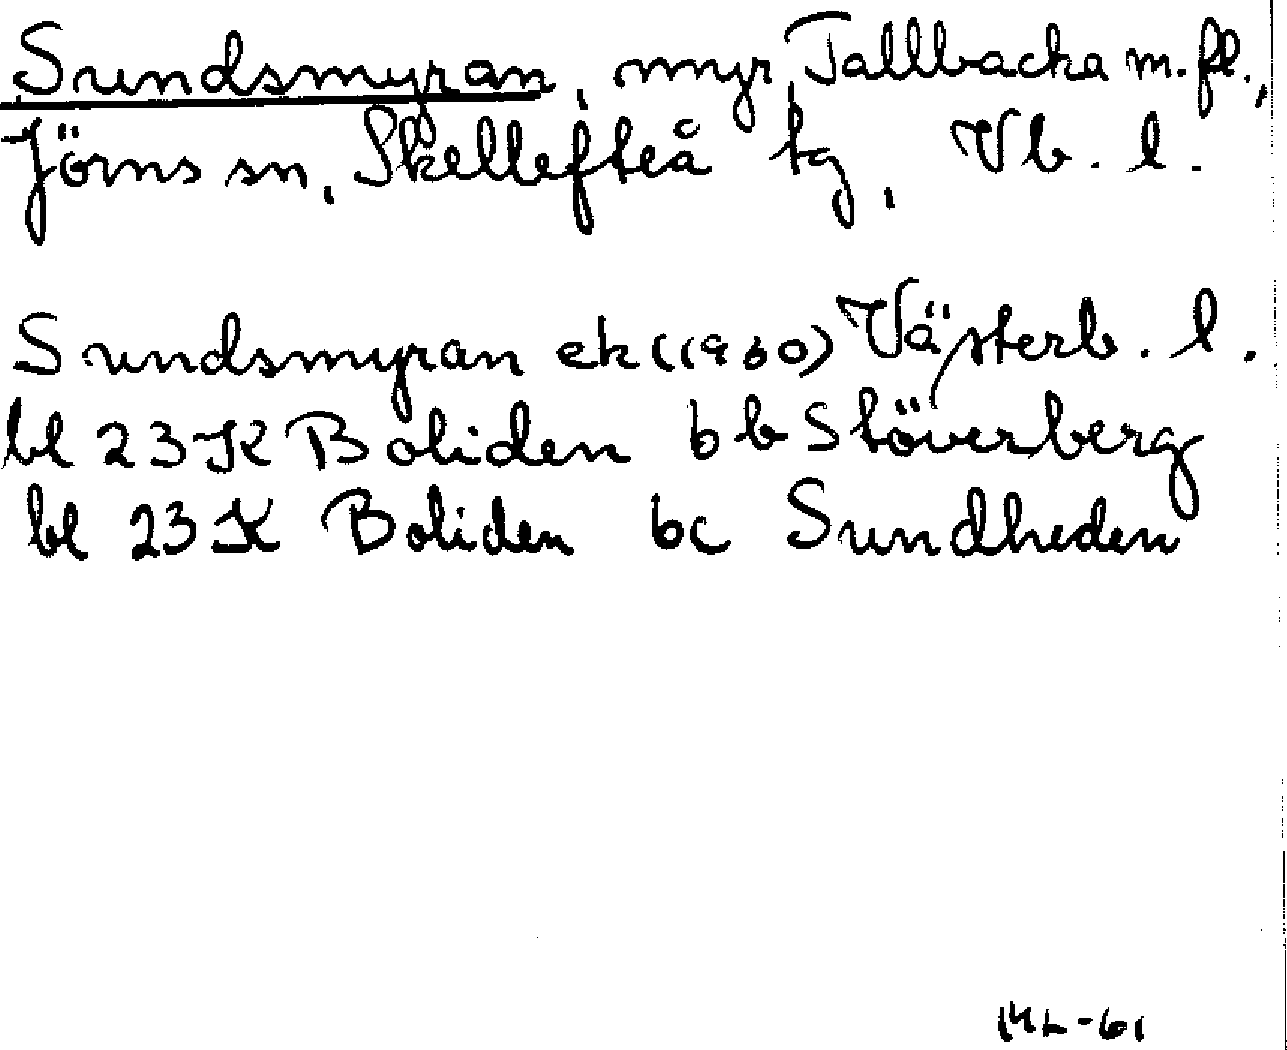 Sundsmyran, myr, Tallbacka m.fl.,
Jörns sn, Skellefteå tg, Vb. l.
Sundsmyran ek (1960) Västerb. l.
bl 23 K Boliden bb Stöverberg
bl 23 K Boliden bc Sundheden
-61